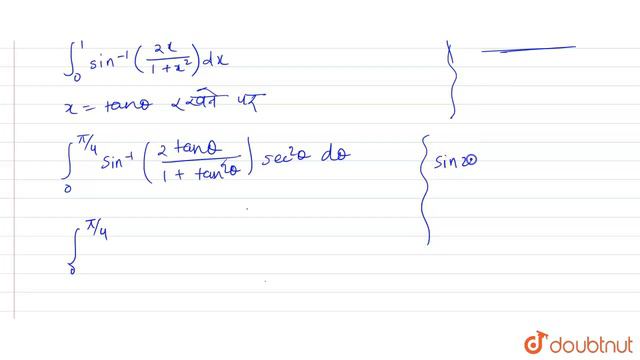 ∫₀¹ sin⁻¹(2x/(1+x²)) dx
x = tanθ रखने पर
∫₀^(π/4) sin⁻¹(2 tanθ/(1 + tan²θ)) sec²θ dθ
sin2θ
∫₀^(π/4)
doubtnut